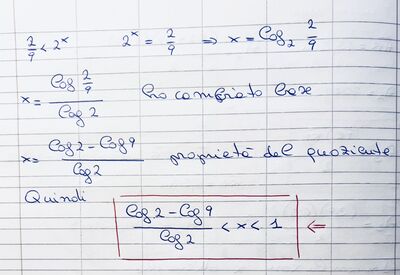 2/9 < 2^x    2^x = 2/9 ⇒ x = log₂ 2/9
x = (log 2/9)/(log 2)    ho cambiato base
x = (log 2 - log 9)/(log 2)    proprietà del quoziente
Quindi
(log 2 - log 9)/(log 2) < x < 1 ⇐